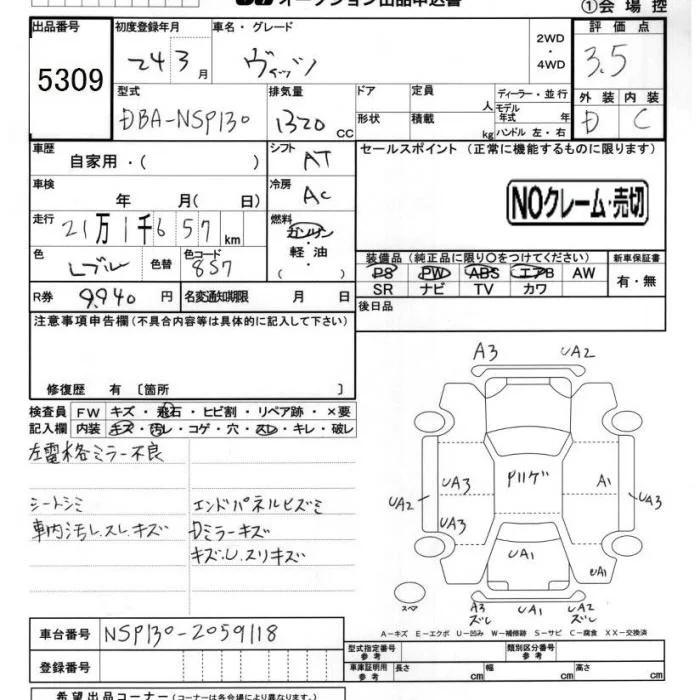 オークション出品申込書
①会場控
出品番号
5309
初度登録年月
24 3月
車名・グレード
ヴィッツ
2WD
・
4WD
評価点
3.5
型式
DBA-NSP130
排気量
1320 CC
ドア
形状
定員
人
積載
kg
ディーラー・並行
モデル年式 年
ハンドル 左・右
外装
内装
D
C
車歴
自家用・( )
シフト
AT
セールスポイント (正常に機能するものに限ります)
車検
年 月( 日)
冷房
AC
NOクレーム・売切
走行
21万1千657km
燃料
ガソリン
軽油
( )
色
Lブルー
色替
色コード
8S7
装備品 (純正品に限り〇をつけてください)
新車保証書
PS PW ABS エアB AW
SR ナビ TV カワ
有・無
R券
9,940 円
名変通知期限 月 日
後日品
注意事項申告欄 (不具合内容等は具体的に記入して下さい)
修復歴 有 〔箇所 〕
検査員記入欄
FW キズ・飛石・ヒビ割・リペア跡・×要
内装 キズ・汚レ・コゲ・穴・スレ・キレ・破レ
左電格ミラー不良
シートシミ
エンドパネルヒズミ
車内汚レ.スレ.キズ
Dミラーキズ
キズ.U.スリキズ
A3
UA2
UA3
UA2
UA3
A1
UA3
UA1
UA1
スペア
A3
ズレ
UA1
UA2
ズレ
A-キズ E-エクボ U-凹み W-補修跡 S-サビ C-腐食 XX-交換済
車台番号
NSP130-2059118
登録番号
型式指定番号
参考
類別区分番号
参考
車庫証明用
参考
長さ cm
幅 cm
高さ cm
希望出品コーナー (コーナーは各会場により異なります。)